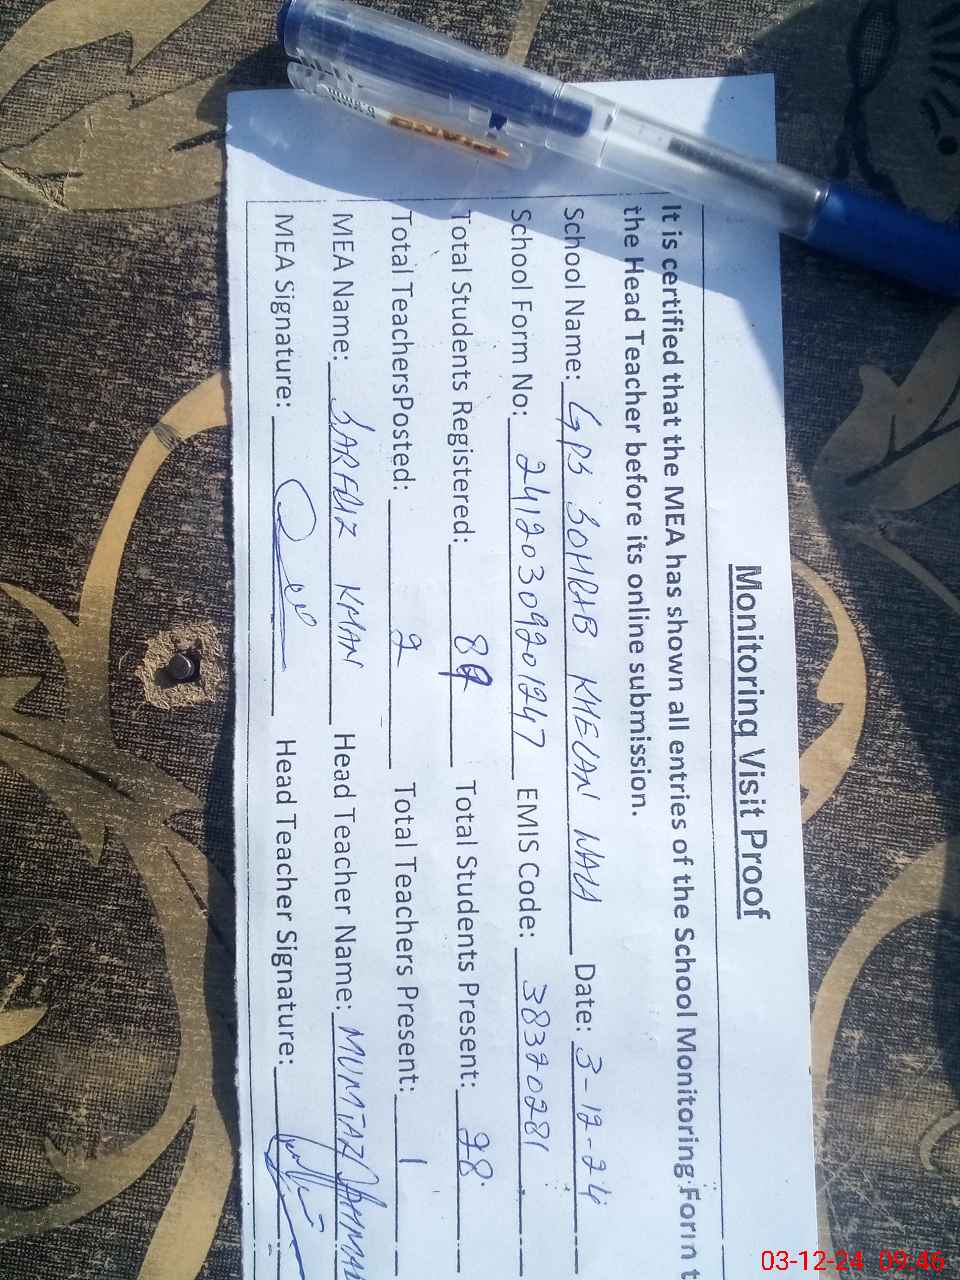 Monitoring Visit Proof
It is certified that the MEA has shown all entries of the School Monitoring Form t
the Head Teacher before its online submission.
School Name: GPS SOHRAB KHELAN WALA Date: 3-12-24
School Form No: 24120309201247 EMIS Code: 38320281
Total Students Registered: 89 Total Students Present: 28
Total TeachersPosted: 2 Total Teachers Present: 1
MEA Name: SARFRAZ KHAN Head Teacher Name: MUMTAZ AHMAD
MEA Signature: Head Teacher Signature:
PIANO
03-12-24 09:46